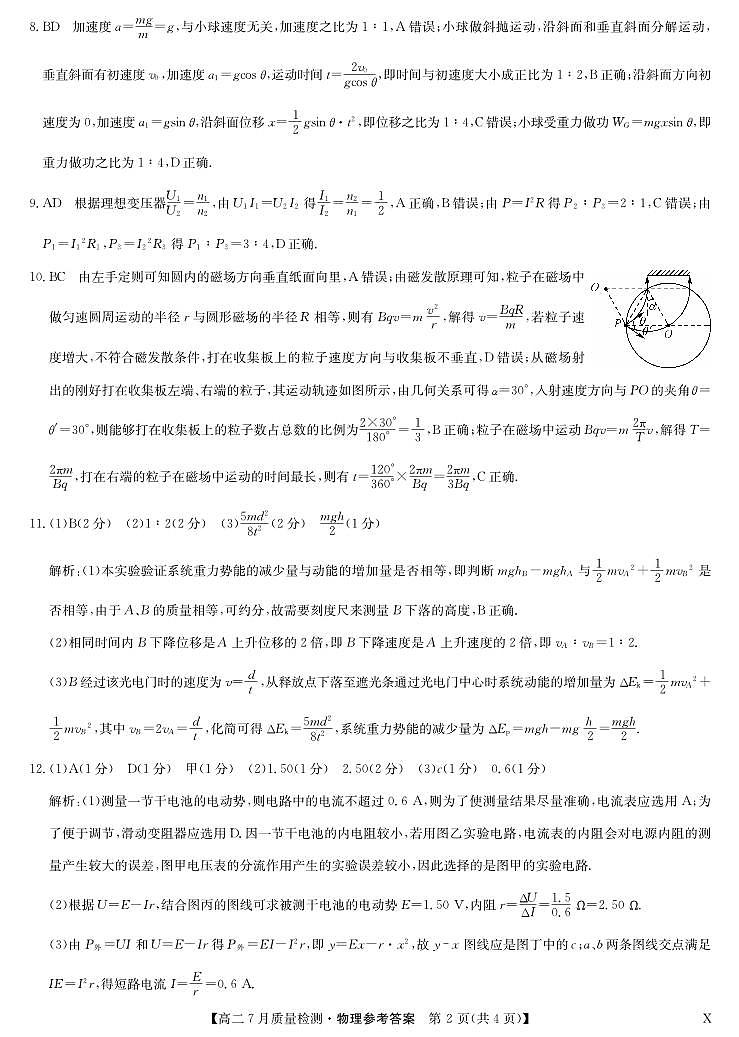 8. BD 加速度 a=mg/m=g,与小球速度无关,加速度之比为 1∶1,A 错误;小球做斜抛运动,沿斜面和垂直斜面分解运动,
垂直斜面有初速度 v₀,加速度 a₁=gcos θ,运动时间 t=2v₀/gcos θ,即时间与初速度大小成正比为 1∶2,B 正确;沿斜面方向初
速度为 0,加速度 a₁=gsin θ,沿斜面位移 x=1/2 gsin θ·t²,即位移之比为 1∶4,C 错误;小球受重力做功 W_G=mgxsin θ,即
重力做功之比为 1∶4,D 正确.
9. AD 根据理想变压器 U₁/U₂=n₁/n₂,由 U₁I₁=U₂I₂ 得 I₁/I₂=n₂/n₁=1/2,A 正确,B 错误;由 P=I²R 得 P₂∶P₃=2∶1,C 错误;由
P₁=I₁²R₁,P₃=I₂²R₃ 得 P₁∶P₃=3∶4,D 正确.
10. BC 由左手定则可知圆内的磁场方向垂直纸面向里,A 错误;由磁发散原理可知,粒子在磁场中
做匀速圆周运动的半径 r 与圆形磁场的半径 R 相等,则有 Bqv=m v²/r,解得 v=BqR/m,若粒子速
度增大,不符合磁发散条件,打在收集板上的粒子速度方向与收集板不垂直,D 错误;从磁场射
出的刚好打在收集板左端、右端的粒子,其运动轨迹如图所示,由几何关系可得 α=30°,入射速度方向与 PO 的夹角 θ=
θ′=30°,则能够打在收集板上的粒子数占总数的比例为 2×30°/180°=1/3,B 正确;粒子在磁场中运动 Bqv=m 2π/T v,解得 T=
2πm/Bq,打在右端的粒子在磁场中运动的时间最长,则有 t=120°/360°×2πm/Bq=2πm/3Bq,C 正确.
O
α
θ′
P
θ
O
11. (1)B(2 分) (2)1∶2(2 分) (3)5md²/8t²(2 分) mgh/2(1 分)
解析:(1)本实验验证系统重力势能的减少量与动能的增加量是否相等,即判断 mgh_B－mgh_A 与 1/2 mv_A²＋1/2 mv_B² 是
否相等,由于 A、B 的质量相等,可约分,故需要刻度尺来测量 B 下落的高度,B 正确.
(2)相同时间内 B 下降位移是 A 上升位移的 2 倍,即 B 下降速度是 A 上升速度的 2 倍,即 v_A∶v_B=1∶2.
(3)B 经过该光电门时的速度为 v=d/t,从释放点下落至遮光条通过光电门中心时系统动能的增加量为 ΔE_k=1/2 mv_A²＋
1/2 mv_B²,其中 v_B=2v_A=d/t,化简可得 ΔE_k=5md²/8t²,系统重力势能的减少量为 ΔE_p=mgh－mg h/2=mgh/2.
12. (1)A(1 分) D(1 分) 甲(1 分) (2)1.50(1 分) 2.50(2 分) (3)c(1 分) 0.6(1 分)
解析:(1)测量一节干电池的电动势,则电路中的电流不超过 0.6 A,则为了使测量结果尽量准确,电流表应选用 A;为
了便于调节,滑动变阻器应选用 D. 因一节干电池的内电阻较小,若用图乙实验电路,电流表的内阻会对电源内阻的测
量产生较大的误差,图甲电压表的分流作用产生的实验误差较小,因此选择的是图甲的实验电路.
(2)根据 U=E－Ir,结合图丙的图线可求被测干电池的电动势 E=1.50 V,内阻 r=ΔU/ΔI=1.5/0.6 Ω=2.50 Ω.
(3)由 P外=UI 和 U=E－Ir 得 P外=EI－I²r,即 y=Ex－r·x²,故 y-x 图线应是图丁中的 c;a、b 两条图线交点满足
IE=I²r,得短路电流 I=E/r=0.6 A.
【高二 7 月质量检测·物理参考答案 第 2 页(共 4 页)】 X